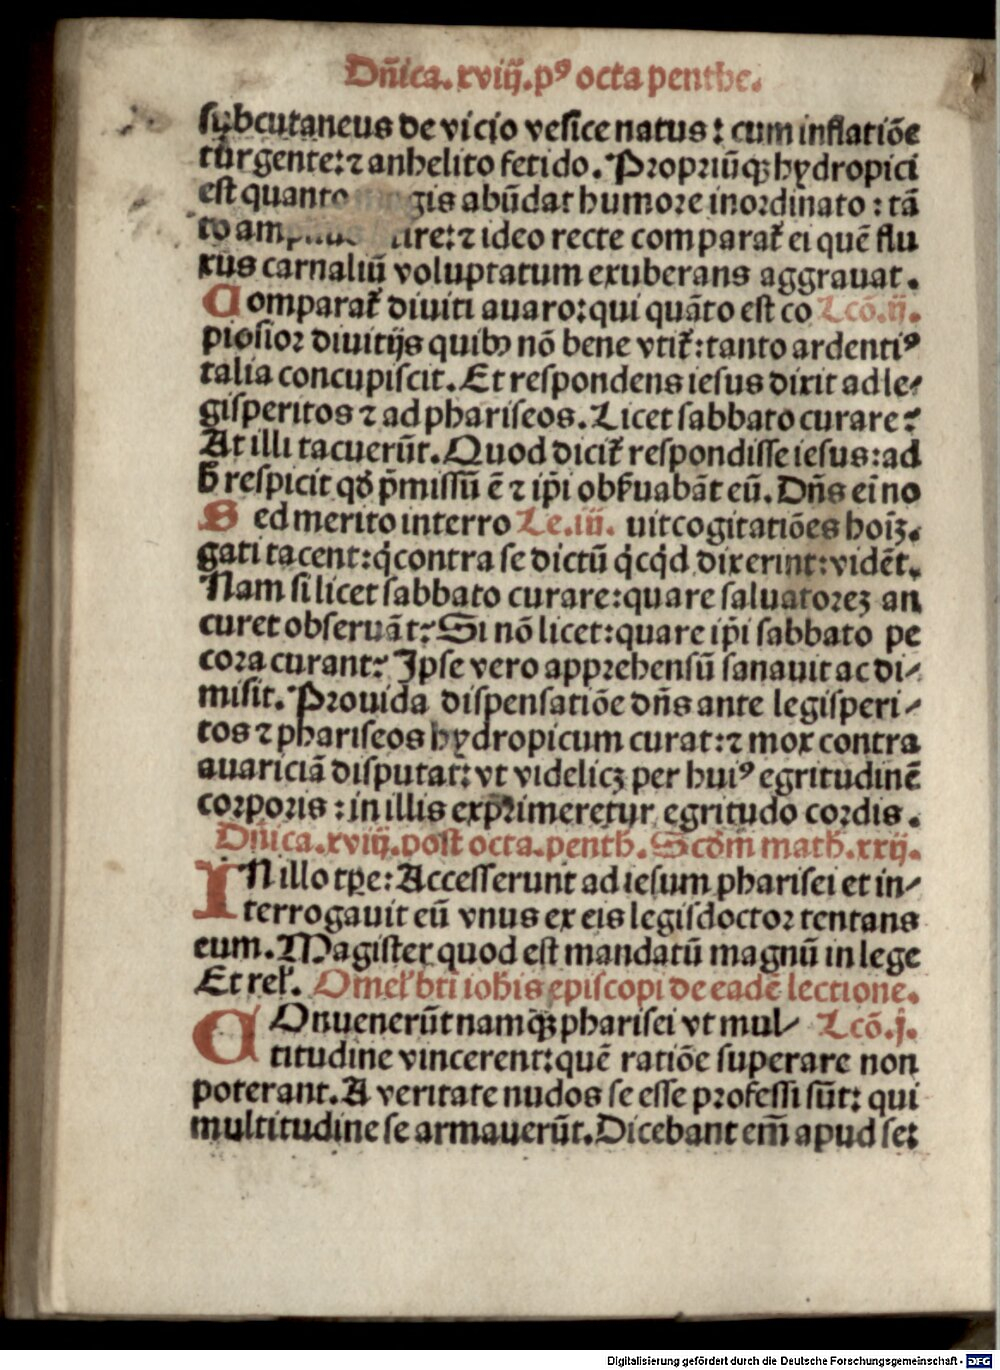 Dn̄ica. xviij. pꝰ octa penthe.
subcutaneus de vicio vesice natus: cum inflatiōe
turgente: ⁊ anhelito fetido. Propriūqꝫ hydropici
est quanto gis abūdat humore inordinato: tā
to ⁊ ideo recte comparat᷑ ei quē flu
xus carnaliū voluptatum exuberans aggrauat.
Comparat᷑ diuiti auaro: qui quāto est co Lcō. ij.
piosior diuitijs quibꝰ nō bene vtit᷑: tanto ardentiꝰ
talia concupiscit. Et respondens iesus dixit ad le⸗
gisperitos ⁊ ad phariseos. Licet sabbato curare?
At illi tacuerūt. Quod dicit᷑ respondisse iesus: ad
h̄ respicit qd̓ p̄missū ē ⁊ ip̄i obẜuabāt eū. Dn̄s ei̅ no
Sed merito interro Le. iij. uit cogitatiōes hoīꝫ.
gati tacent: q̇ contra se dictū q̇cq̇d dixerint: vidēt.
Nam si licet sabbato curare: quare saluatoreꝫ an
curet obseruāt? Si nō licet: quare ip̄i sabbato pe
cora curant? Ipse vero apprehensū sanauit ac di⸗
misit. Prouida dispensatiōe dn̄s ante legisperi⸗
tos ⁊ phariseos hydropicum curat: ⁊ mox contra
auariciā disputat: vt videlicꝫ per huiꝰ egritudinē
corporis: in illis exprimeretur egritudo cordis.
Dn̄ica. xviij. post octa. penth. Scd̓m math. xxij.
IN illo tp̄e: Accesserunt ad iesum pharisei et in⸗
terrogauit eū vnus ex eis legisdoctor tentans
eum. Magister quod est mandatū magnū in lege
Et rel̓. Omel̓ bti ioh̓is episcopi de eadē lectione.
COnuenerūt namqꝫ pharisei vt mul⸗ Lcō. j.
titudine vincerent: quē ratiōe superare non
poterant. A veritate nudos se esse professi sūt: qui
multitudine se armauerūt. Dicebant em̄ apud se:
Digitalisierung gefördert durch die Deutsche Forschungsgemeinschaft - DFG